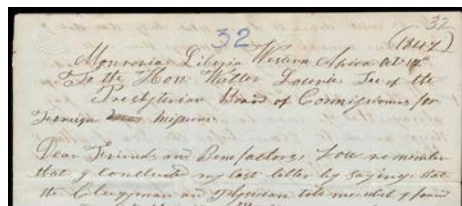 32
32
(1847)
Monrovia Liberia Western Africa Oct 12th
To the Hon Walter Lowrie Sec of the
Presbyterian Board of Commissioners for
Foreign Missions.
Dear Friends and Benefactors, You remember
that I concluded my last letter by saying, that
the Clergyman and Physician told me what I found